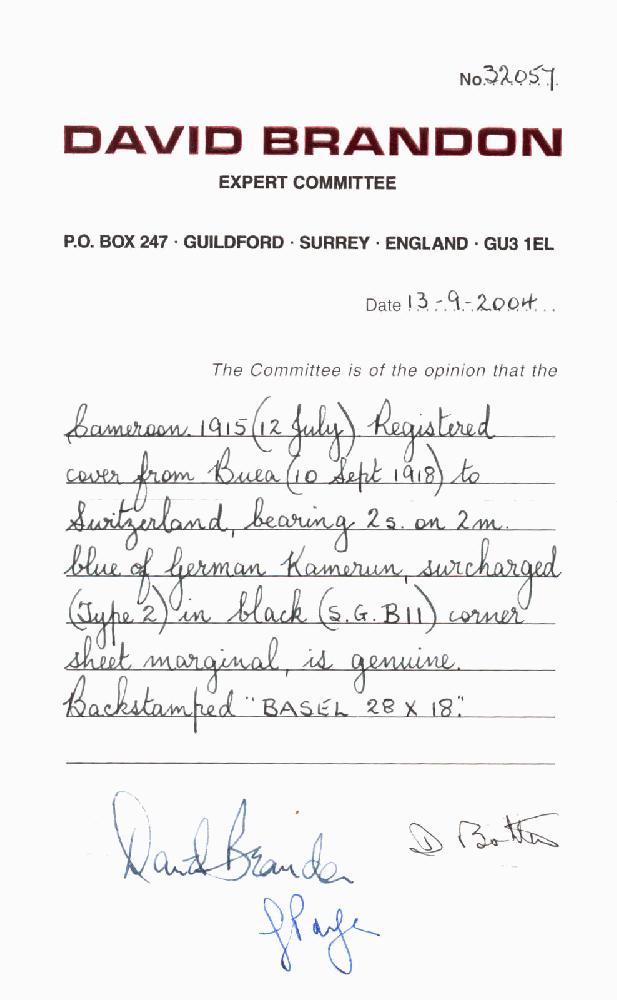 No. 32057
DAVID BRANDON
EXPERT COMMITTEE
P.O. BOX 247 · GUILDFORD · SURREY · ENGLAND · GU3 1EL
Date 13-9-2004
The Committee is of the opinion that the
Cameroon. 1915 (12 July) Registered
cover from Buea (10 Sept 1918) to
Switzerland, bearing 2s. on 2m.
blue of German Kamerun, surcharged
(Type 2) in black (S.G. B11) corner
sheet marginal, is genuine.
Backstamped "BASEL 28 X 18."
David Brandon